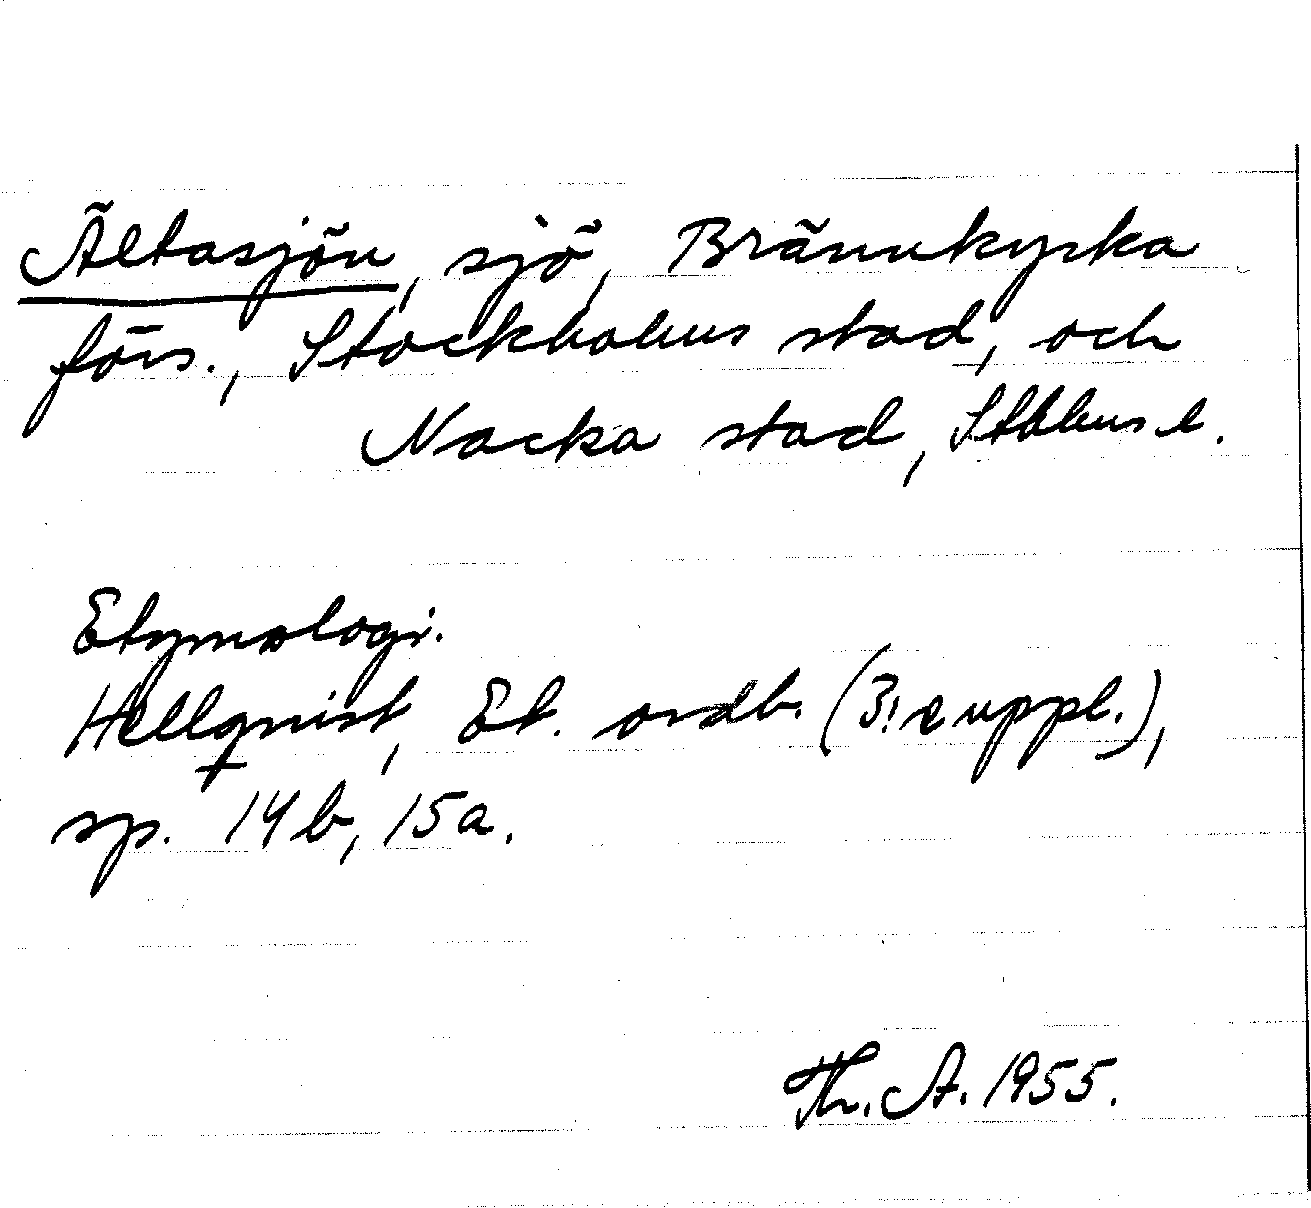 Ältasjön, sjö, Brännkyrka
förs., Stockholms stad, och
Nacka stad, Sthlms l.
Etymologi.
Hellquist, Et. ordb. (3:e uppl.),
sp. 14b, 15a.
Th. A. 1955.